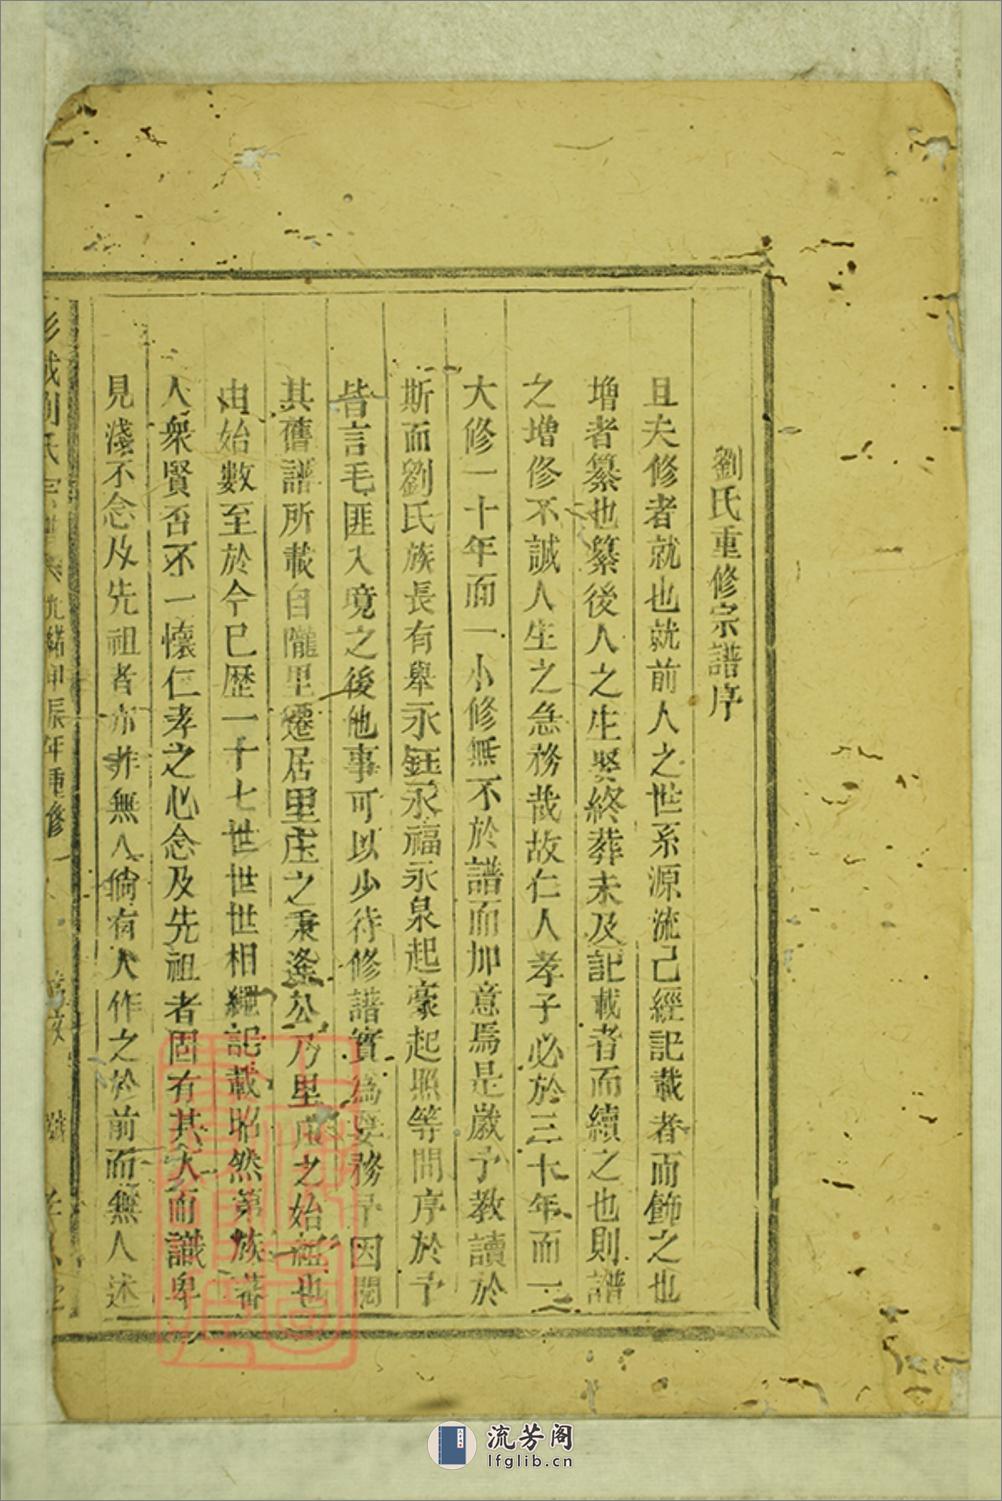 劉氏重修宗譜序
且夫修者就也就前人之世系源流己經記載者而飾之也
增者纂也纂後人之生娶終葬未及記載者而續之也則譜
之增修不誠人生之急務哉故仁人孝子必於三十年而一
大修一十年面一小修無不於譜而加意焉是歲予教讀於
斯而劉氏族長有舉永鈺永福永泉起豪起照等問序於予
皆言毛匪入境之後他事可以少待修譜實為要務予因閱
其舊譜所載自隴里遷居里庄之秉遙公乃里庄之始祖也
由始數至於今已歷一十七世世世相繼記載昭然第族蕃
人衆賢否不一懷仁孝之心念及先祖者固有其人而識卑
見淺不念及先祖者亦非無人倘有人作之於前而無人述
彭城劉氏宗譜 光緒甲辰年重修
流芳阁
lfglib.cn